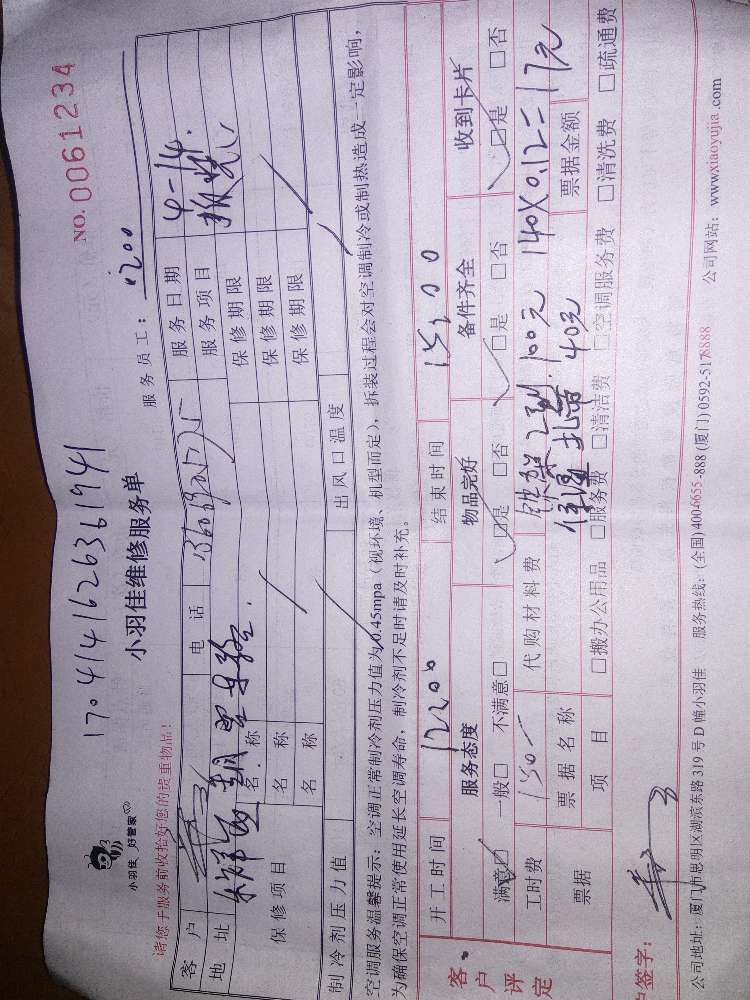 NO. 0061234
17041416263619​41
小羽佳 好管家
小羽佳维修服务单
请您于服务前收拾好您的贵重物品！
服务员工：1200
客户
电话
服务日期 4-14
地址
服务项目
保修项目
名称 保修期限
名称 保修期限
名称 保修期限
制冷剂压力值
出风口温度
空调服务温馨提示：空调正常制冷剂压力值为0.45mpa（视环境、机型而定），拆装过程会对空调制冷或制热造成一定影响，
为确保空调正常使用延长空调寿命，制冷剂不足时请及时补充。
客户评定
开工时间 12:00 结束时间 15:00
服务态度 物品完好 备件齐全 收到卡片
满意□ 一般□ 不满意□ □是 □否 □是 □否 □是 □否
工时费 150- 代购材料费 铁架 100元 140×0.12=17元
40元
票据 票据名称 票据金额
项目 □搬办公用品 □服务费 □清洁费 □空调服务费 □清洗费 □疏通费
户签字：
公司地址：厦门市思明区湖滨东路319号D幢小羽佳 服务热线：(全国)4004655-888 (厦门)0592-5178888 公司网站：www.xiaoyujia.com